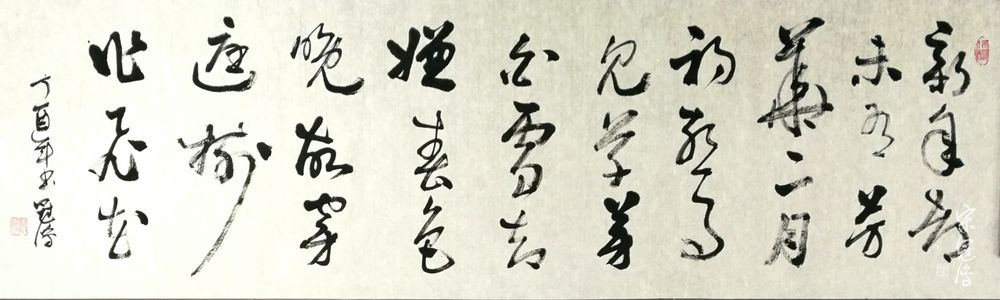 新年都
未有芳
華二月
初驚
見草芽
白雪却
嫌春色
晚故穿
庭樹
作飛花
丁酉年书